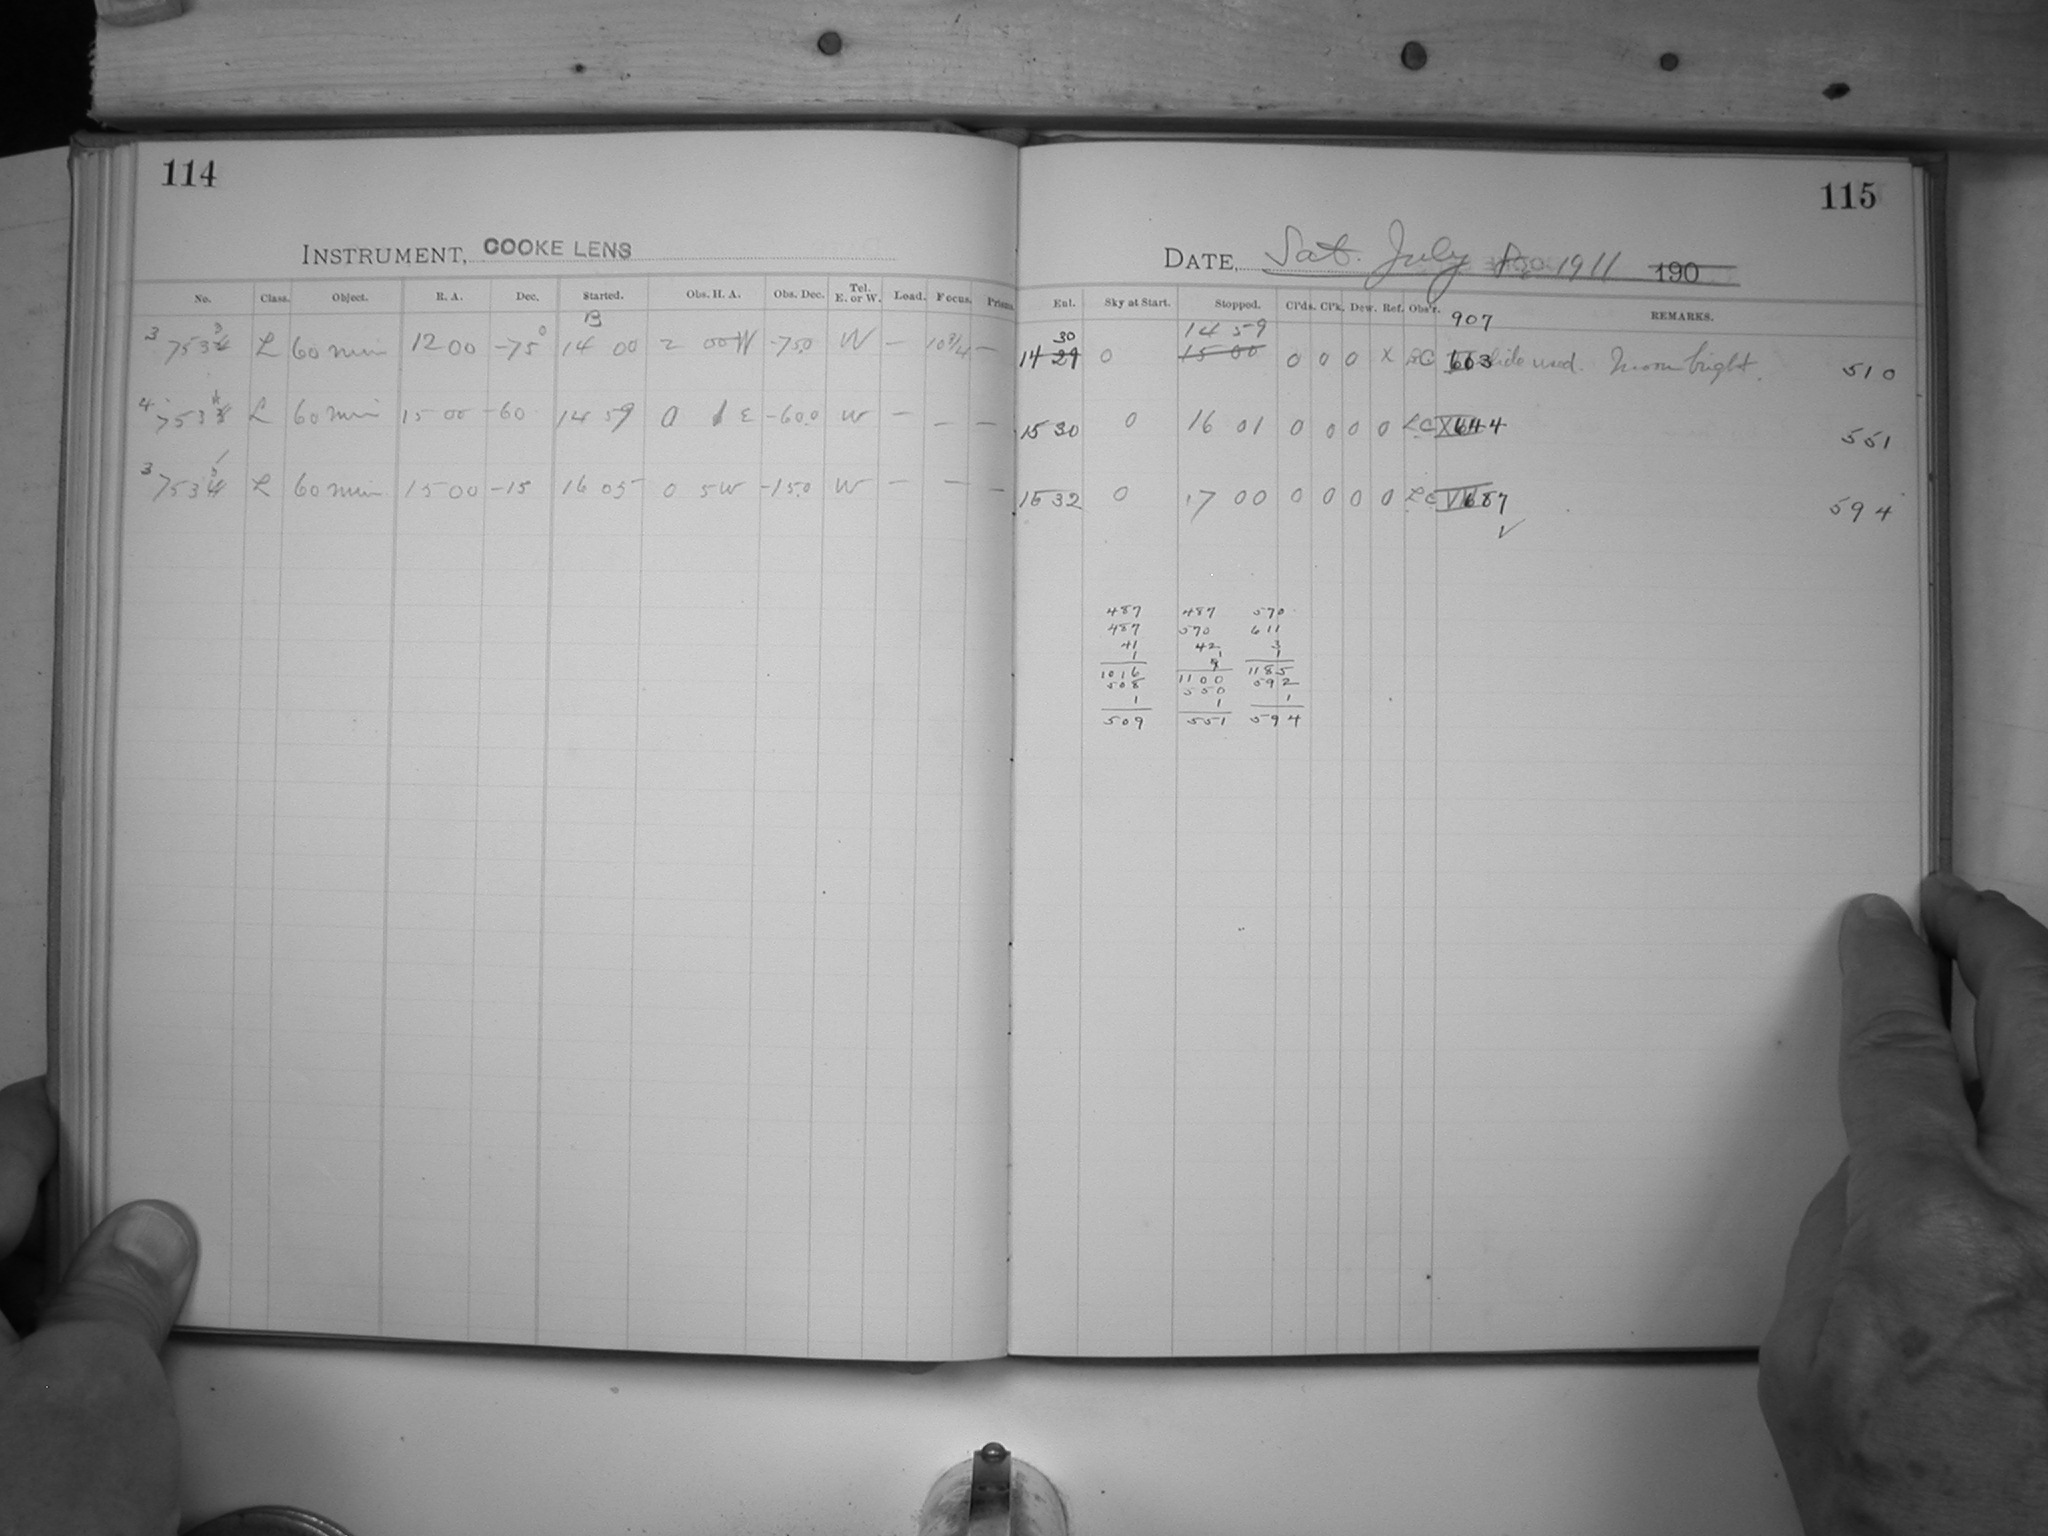 114
INSTRUMENT, COOKE LENS
No. Class. Object. R. A. Dec. Started. Obs. H. A. Obs. Dec. Tel. E. or W. Load. Focus. Prisms.
L 60 min 12 00 -75 14 00 2 00 W -75.0 W — 10 3/4 —
L 60 min 15 00 -60 14 59 0 E -60.0 W — — —
L 60 min 15 00 -15 16 05 0 5 W -15.0 W — — —
115
DATE, Sat. July 1911 190
Ent. Sky at Start. Stopped. Cl'ds. Cl'k. Dew. Ref. Obs'r. REMARKS.
907
30 14 59
14 29 0 15 00 0 0 0 X 603 slide used. Moon bright. 510
15 30 0 16 01 0 0 0 0 LC 644 551
16 32 0 17 00 0 0 0 0 LC 687 594
487 487 570
487 570 611
41 42 3
1 1 1
1016 1100 1185
508 550 592
1 1 1
509 551 594